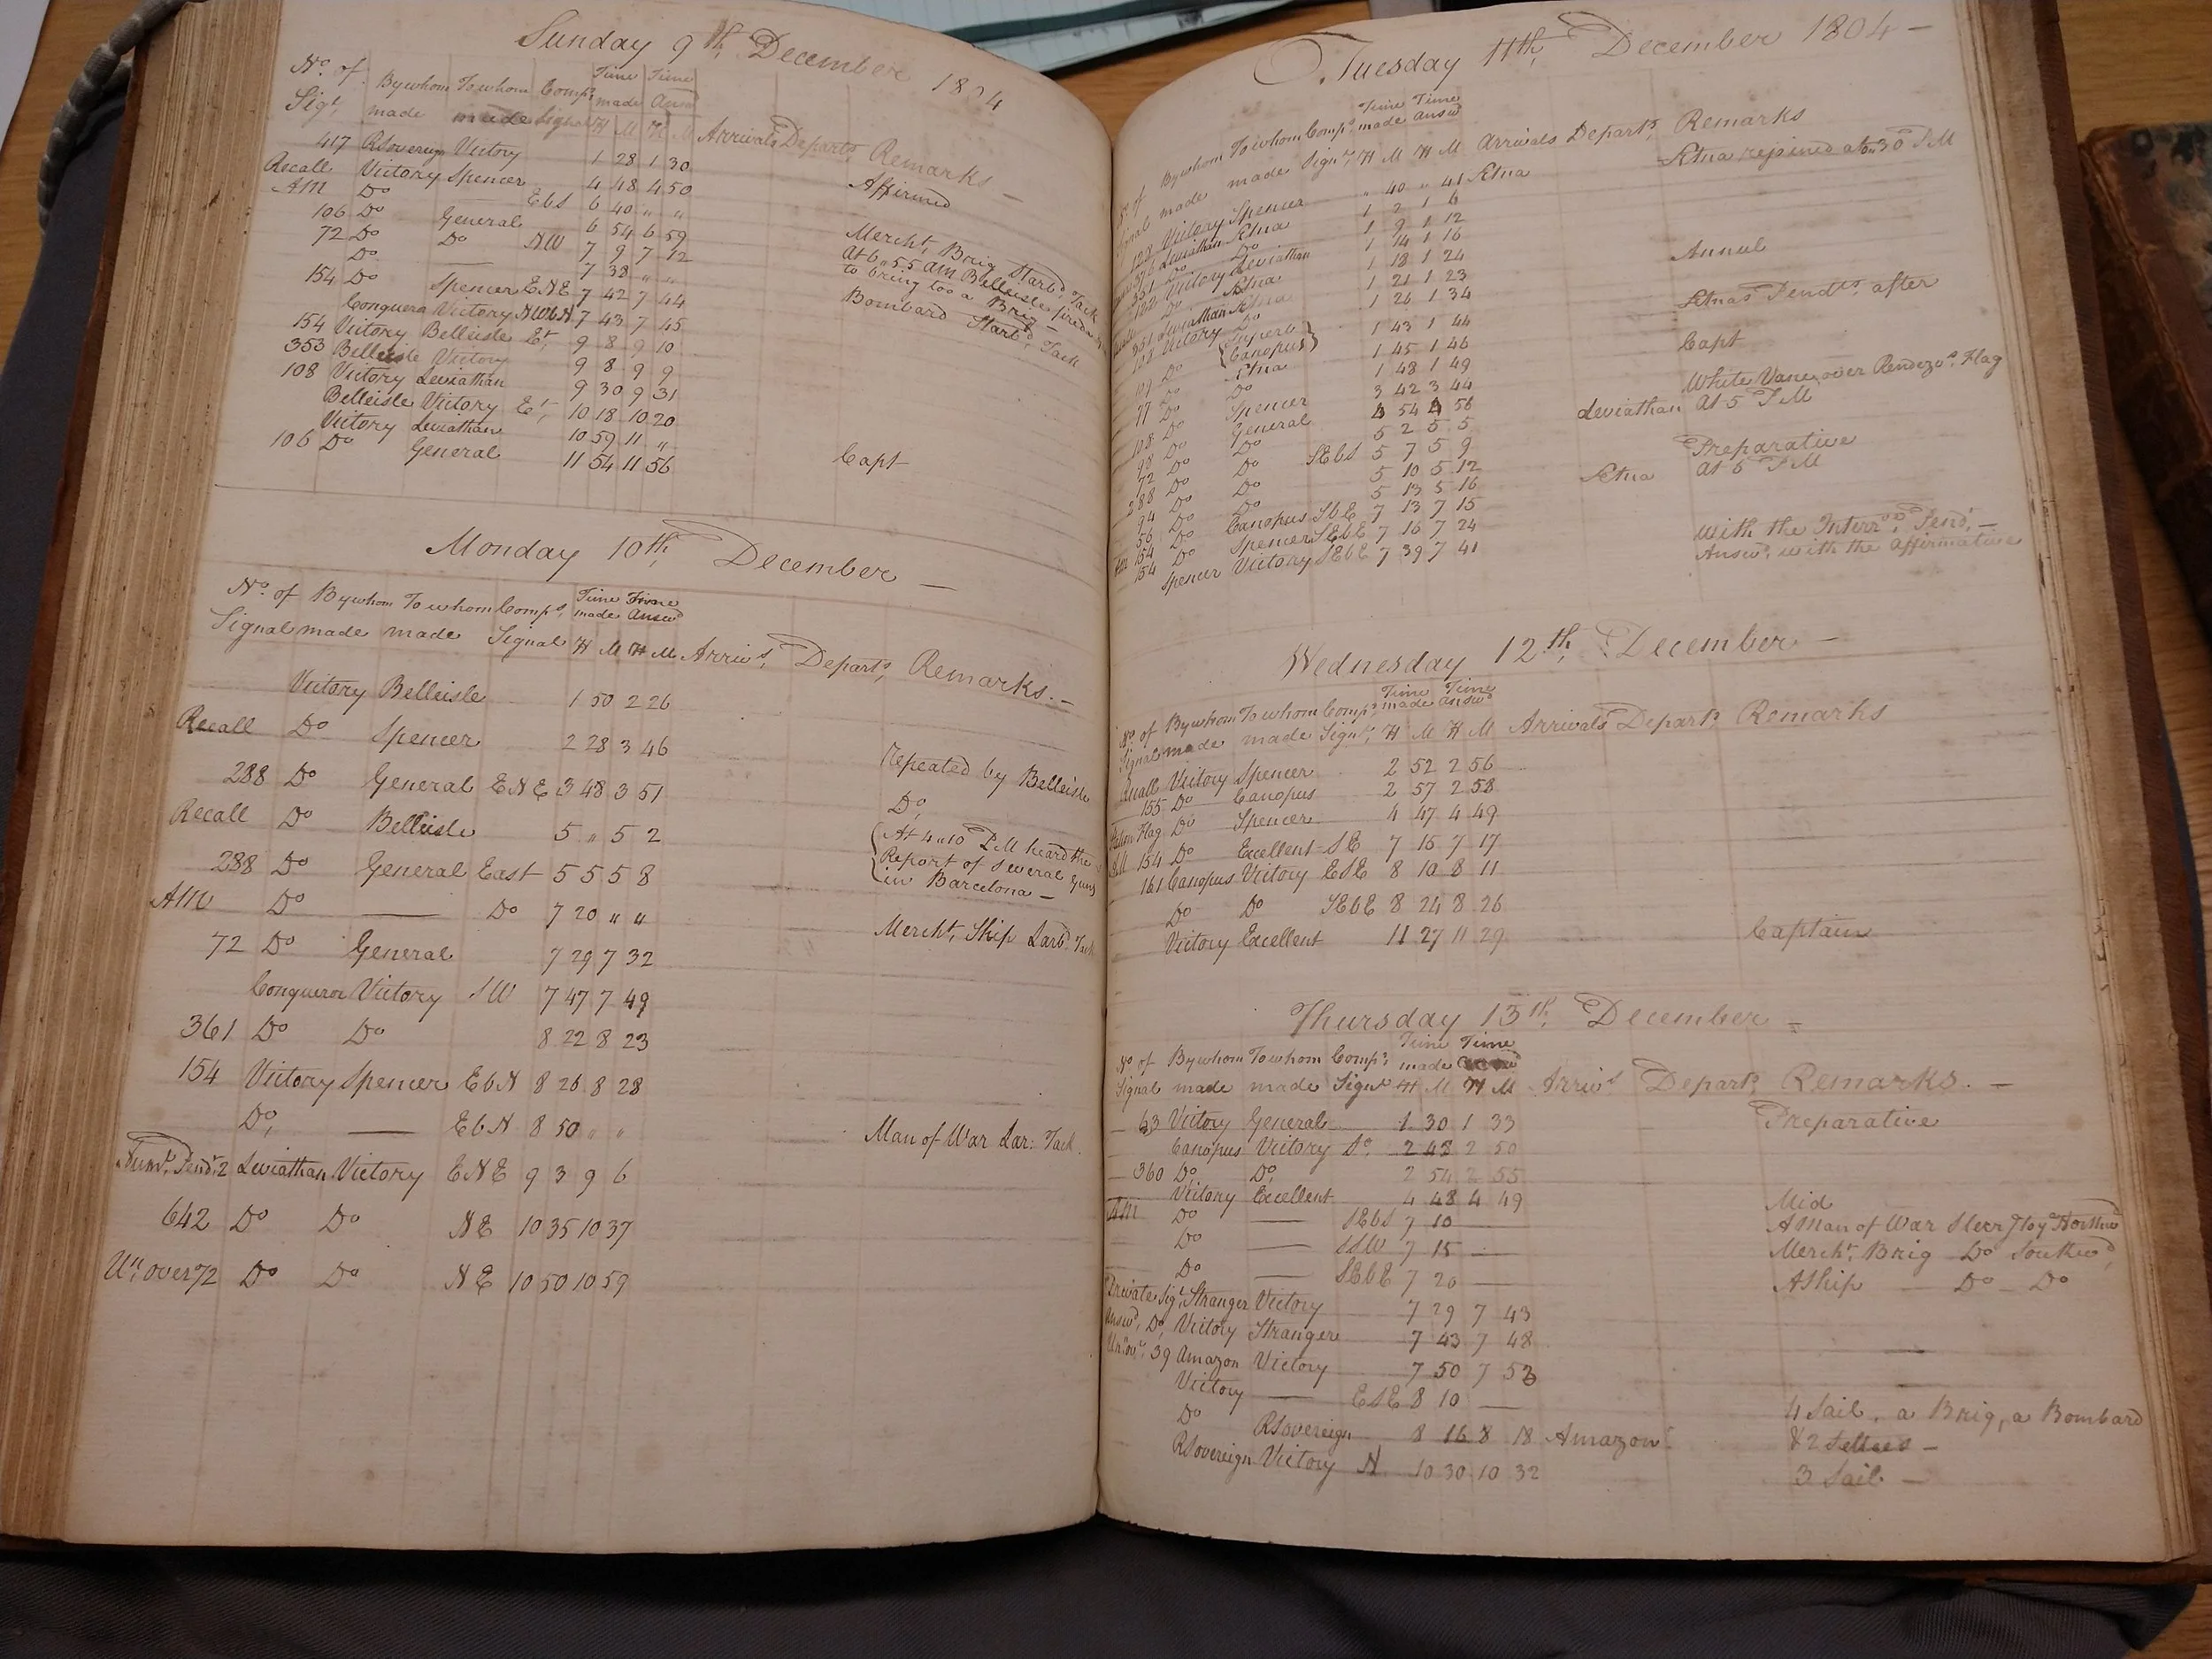 Sunday 9th December 1804
No. of By whom To whom Comps. Time Time
Sigl. made made Signal made Answd
H M H M Arrivals Departs. Remarks
417 RSovereign Victory 1 28 1 30 Affirmed
Recall Victory Spencer 4 48 4 50
AM Do EbS 6 40 " " Mercht. Brig Starbd. Tack
106 Do General 6 54 6 59 At 6..55 AM Belleisle fired
72 Do Do NW 7 9 7 12 to bring too a Brig
Do — 7 38 " " Bombard Starbd. Tack
154 Do Spencer ENE 7 42 7 44
Conqueror Victory NWbN 7 43 7 45
154 Victory Belleisle Et. 9 8 9 10
353 Belleisle Victory 9 8 9 9
108 Victory Leviathan 9 30 9 31
Belleisle Victory Et. 10 18 10 20
Victory Leviathan 10 59 11 " Capt
106 Do General 11 54 11 56
Monday 10th December —
No. of By whom To whom Comps. Time Time
Signal made made Signal made Answd
H M H M Arrivs. Departs. Remarks. —
Victory Belleisle 1 50 2 26
Recall Do Spencer 2 28 3 46 Repeated by Belleisle
288 Do General ENE 3 48 3 51 Do,
Recall Do Belleisle 5 " 5 2 At 4..10 PM heard the
288 Do General East 5 5 5 8 Report of several Guns
in Barcelona —
AM Do — Do 7 20 " " Mercht. Ship Larbd. Tack
72 Do General 7 29 7 32
Conqueror Victory SW 7 47 7 49
361 Do Do 8 22 8 23
154 Victory Spencer EbN 8 26 8 28
Do, — EbN 8 50 " " Man of War Lar: Tack.
Numl. Pendt. 2 Leviathan Victory ENE 9 3 9 6
642 Do Do NE 10 35 10 37
Un. over 72 Do Do NE 10 50 10 59
Tuesday 11th, December 1804 —
No. of By whom To whom Comps. Time Time
Signal made made Signl. made Answd
H M H M Arrivals Departs. Remarks
128 Victory Spencer " 40 " 41 Etna Etna rejoined at 30 PM
376 Leviathan Etna 1 2 1 6
351 Do Do 1 9 1 12
122 Victory Leviathan 1 14 1 16 Annul
Do Etna 1 18 1 24
351 Leviathan Etna 1 21 1 23 Etnas Pendts. after
128 Victory Do 1 26 1 34
109 Do Superb Canopus 1 43 1 44 Capt
77 Do Etna 1 45 1 46
108 Do Do 1 48 1 49 White Vane over Rendezvs. Flag
98 Do Spencer 3 42 3 44 Leviathan At 5 PM
72 Do General 4 54 4 56
288 Do Do 5 2 5 5 Preparative
94 Do Do SEbS 5 7 5 9 Etna At 5 PM
56 Do Do 5 10 5 12
5 13 5 16
AM 154 Do Canopus SbE 7 13 7 15 With the Interr. Pendt. —
154 Do Spencer SEbE 7 16 7 24 Answd. with the Affirmative
Spencer Victory SEbE 7 39 7 41
Wednesday 12th, December —
No. of By whom To whom Comps. Time Time
Signal made made Signl. made Answd
H M H M Arrivals Departs. Remarks
Recall Victory Spencer 2 52 2 56
155 Do Canopus 2 57 2 58
Flag Do Spencer 4 47 4 49
AM 154 Do Excellent SE 7 15 7 17
161 Canopus Victory ESE 8 10 8 11
Do Do SEbE 8 24 8 26
Victory Excellent 11 27 11 29 Captain
Thursday 13th, December =
No of By whom To whom Comps. Time Time
Signal made made Signl made
H M H M Arrivs. Departs. Remarks. —
63 Victory General 1 30 1 33 Preparative
Canopus Victory Do, 2 48 2 50
360 Do, Do, 2 54 2 55
Victory Excellent 4 48 4 49 Mid
AM Do — SEbS 7 10 — A Man of War Steerg. to ye Northwd
Do — SSW 7 15 — Mercht. Brig Do Southwd,
Do — SEbE 7 20 — A Ship — Do — Do
Private Sigl. Stranger Victory 7 29 7 43
Answd. Do, Victory Stranger 7 43 7 48
Un. ovr. 39 Amazon Victory 7 50 7 53
Victory — ESE 8 10 — 4 Sail, a Brig, a Bombard
Do RSovereign 8 16 8 18 Amazon & 2 Settees —
RSovereign Victory N 10 30 10 32 3 Sail —